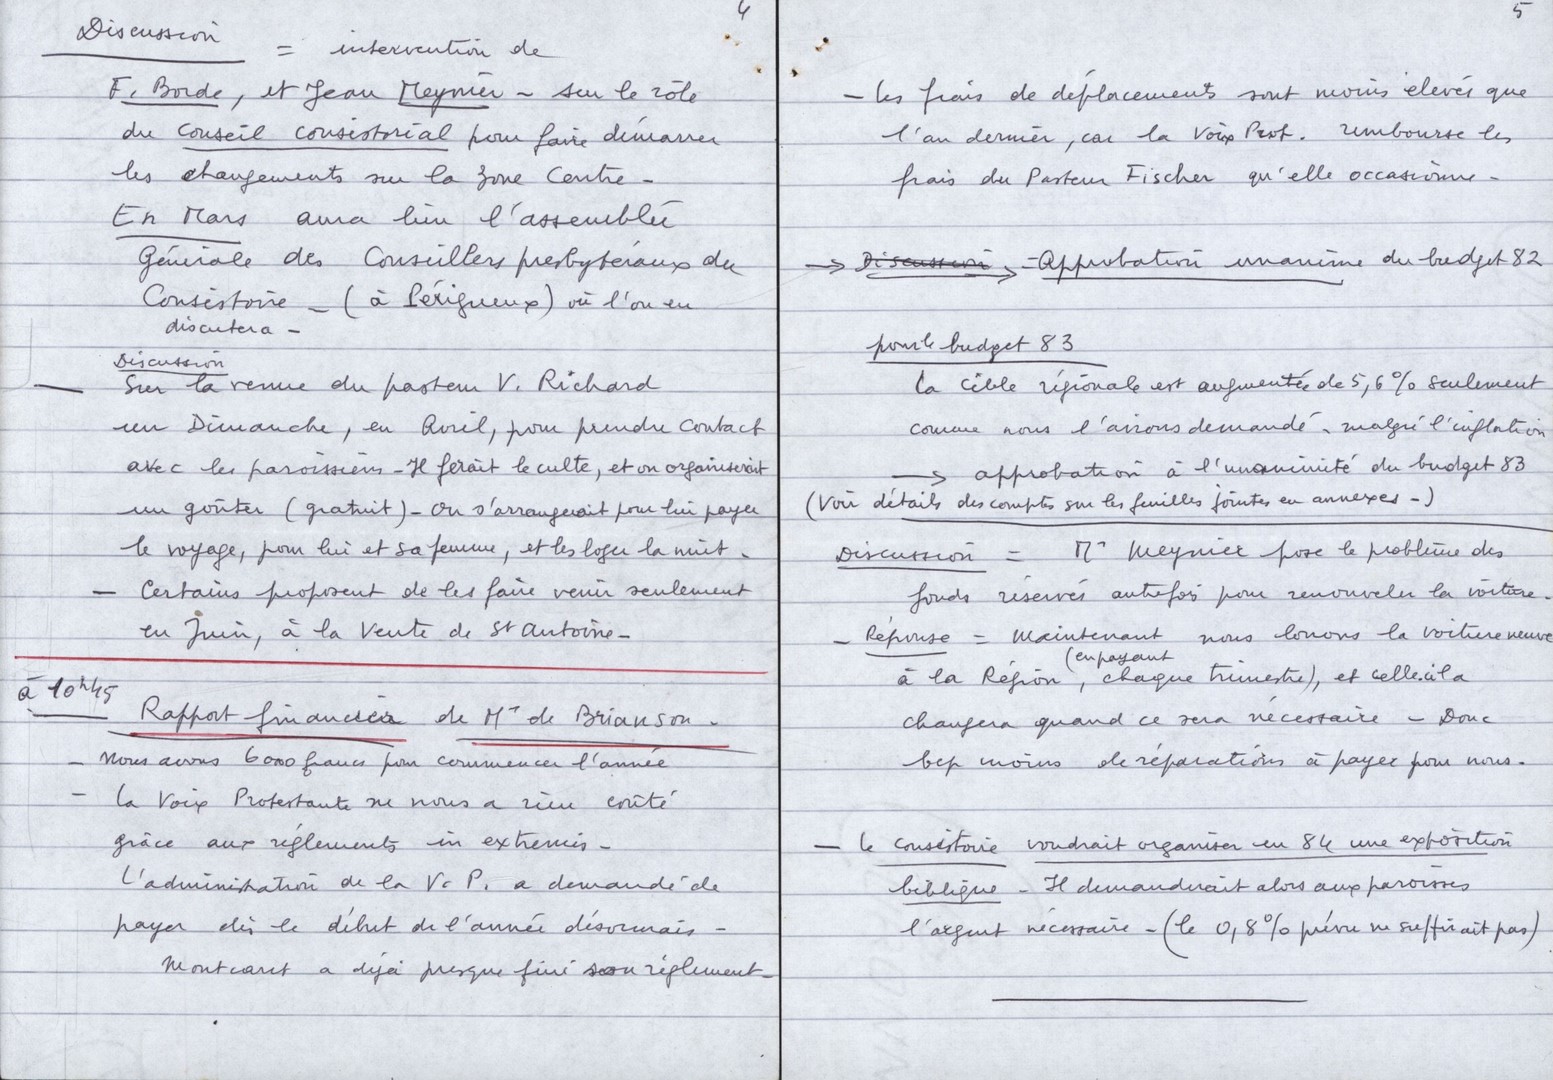 4
Discussion = intervention de
F. Borde, et Jean Meynier - sur le rôle
du Conseil consistorial pour faire démarrer
les changements sur la Zone Centre -
En Mars aura lieu l'assemblée
Générale des Conseillers presbytéraux du
Consistoire - (à Périgueux) où l'on en
discutera -
Discussion
— Sur la venue du pasteur V. Richard
un Dimanche, en Avril, pour prendre contact
avec les paroissiens - Il ferait le culte, et on organiserait
un goûter (gratuit) - On s'arrangerait pour lui payer
le voyage, pour lui et sa femme, et les loger la nuit.
— Certains proposent de les faire venir seulement
en Juin, à la Vente de St Antoine -
à 10h45
Rapport financier de Mr de Brianson -
- Nous avons 6000 francs pour commencer l'année
- la Voix Protestante ne nous a rien coûté
grâce aux réglements in extremis -
L'administration de la V. P. a demandé de
payer dès le début de l'année désormais -
Montcaret a déjà presque fini son réglement -
5
- les frais de déplacements sont moins élevés que
l'an dernier, car la Voix Prot. rembourse les
frais du Pasteur Fischer qu'elle occasionne -
→ Discussion → = Approbation unanime du budget 82
pour le budget 83
la cible régionale est augmentée de 5,6% seulement
comme nous l'avions demandé - malgré l'inflation
→ approbation à l'unanimité du budget 83
(Voir détails des comptes sur les feuilles jointes en annexes -)
Discussion = Mr Meynier pose le problème des
fonds réservés autrefois pour renouveler la voiture -
- Réponse = Maintenant nous louons la voiture neuve
(en payant
à la Région, chaque trimestre), et celle-ci la
changera quand ce sera nécessaire - Donc
bcp moins de réparations à payer pour nous -
— le consistoire voudrait organiser en 84 une exposition
biblique - Il demanderait alors aux paroisses
l'argent nécessaire - (le 0,8% prévu ne suffirait pas)